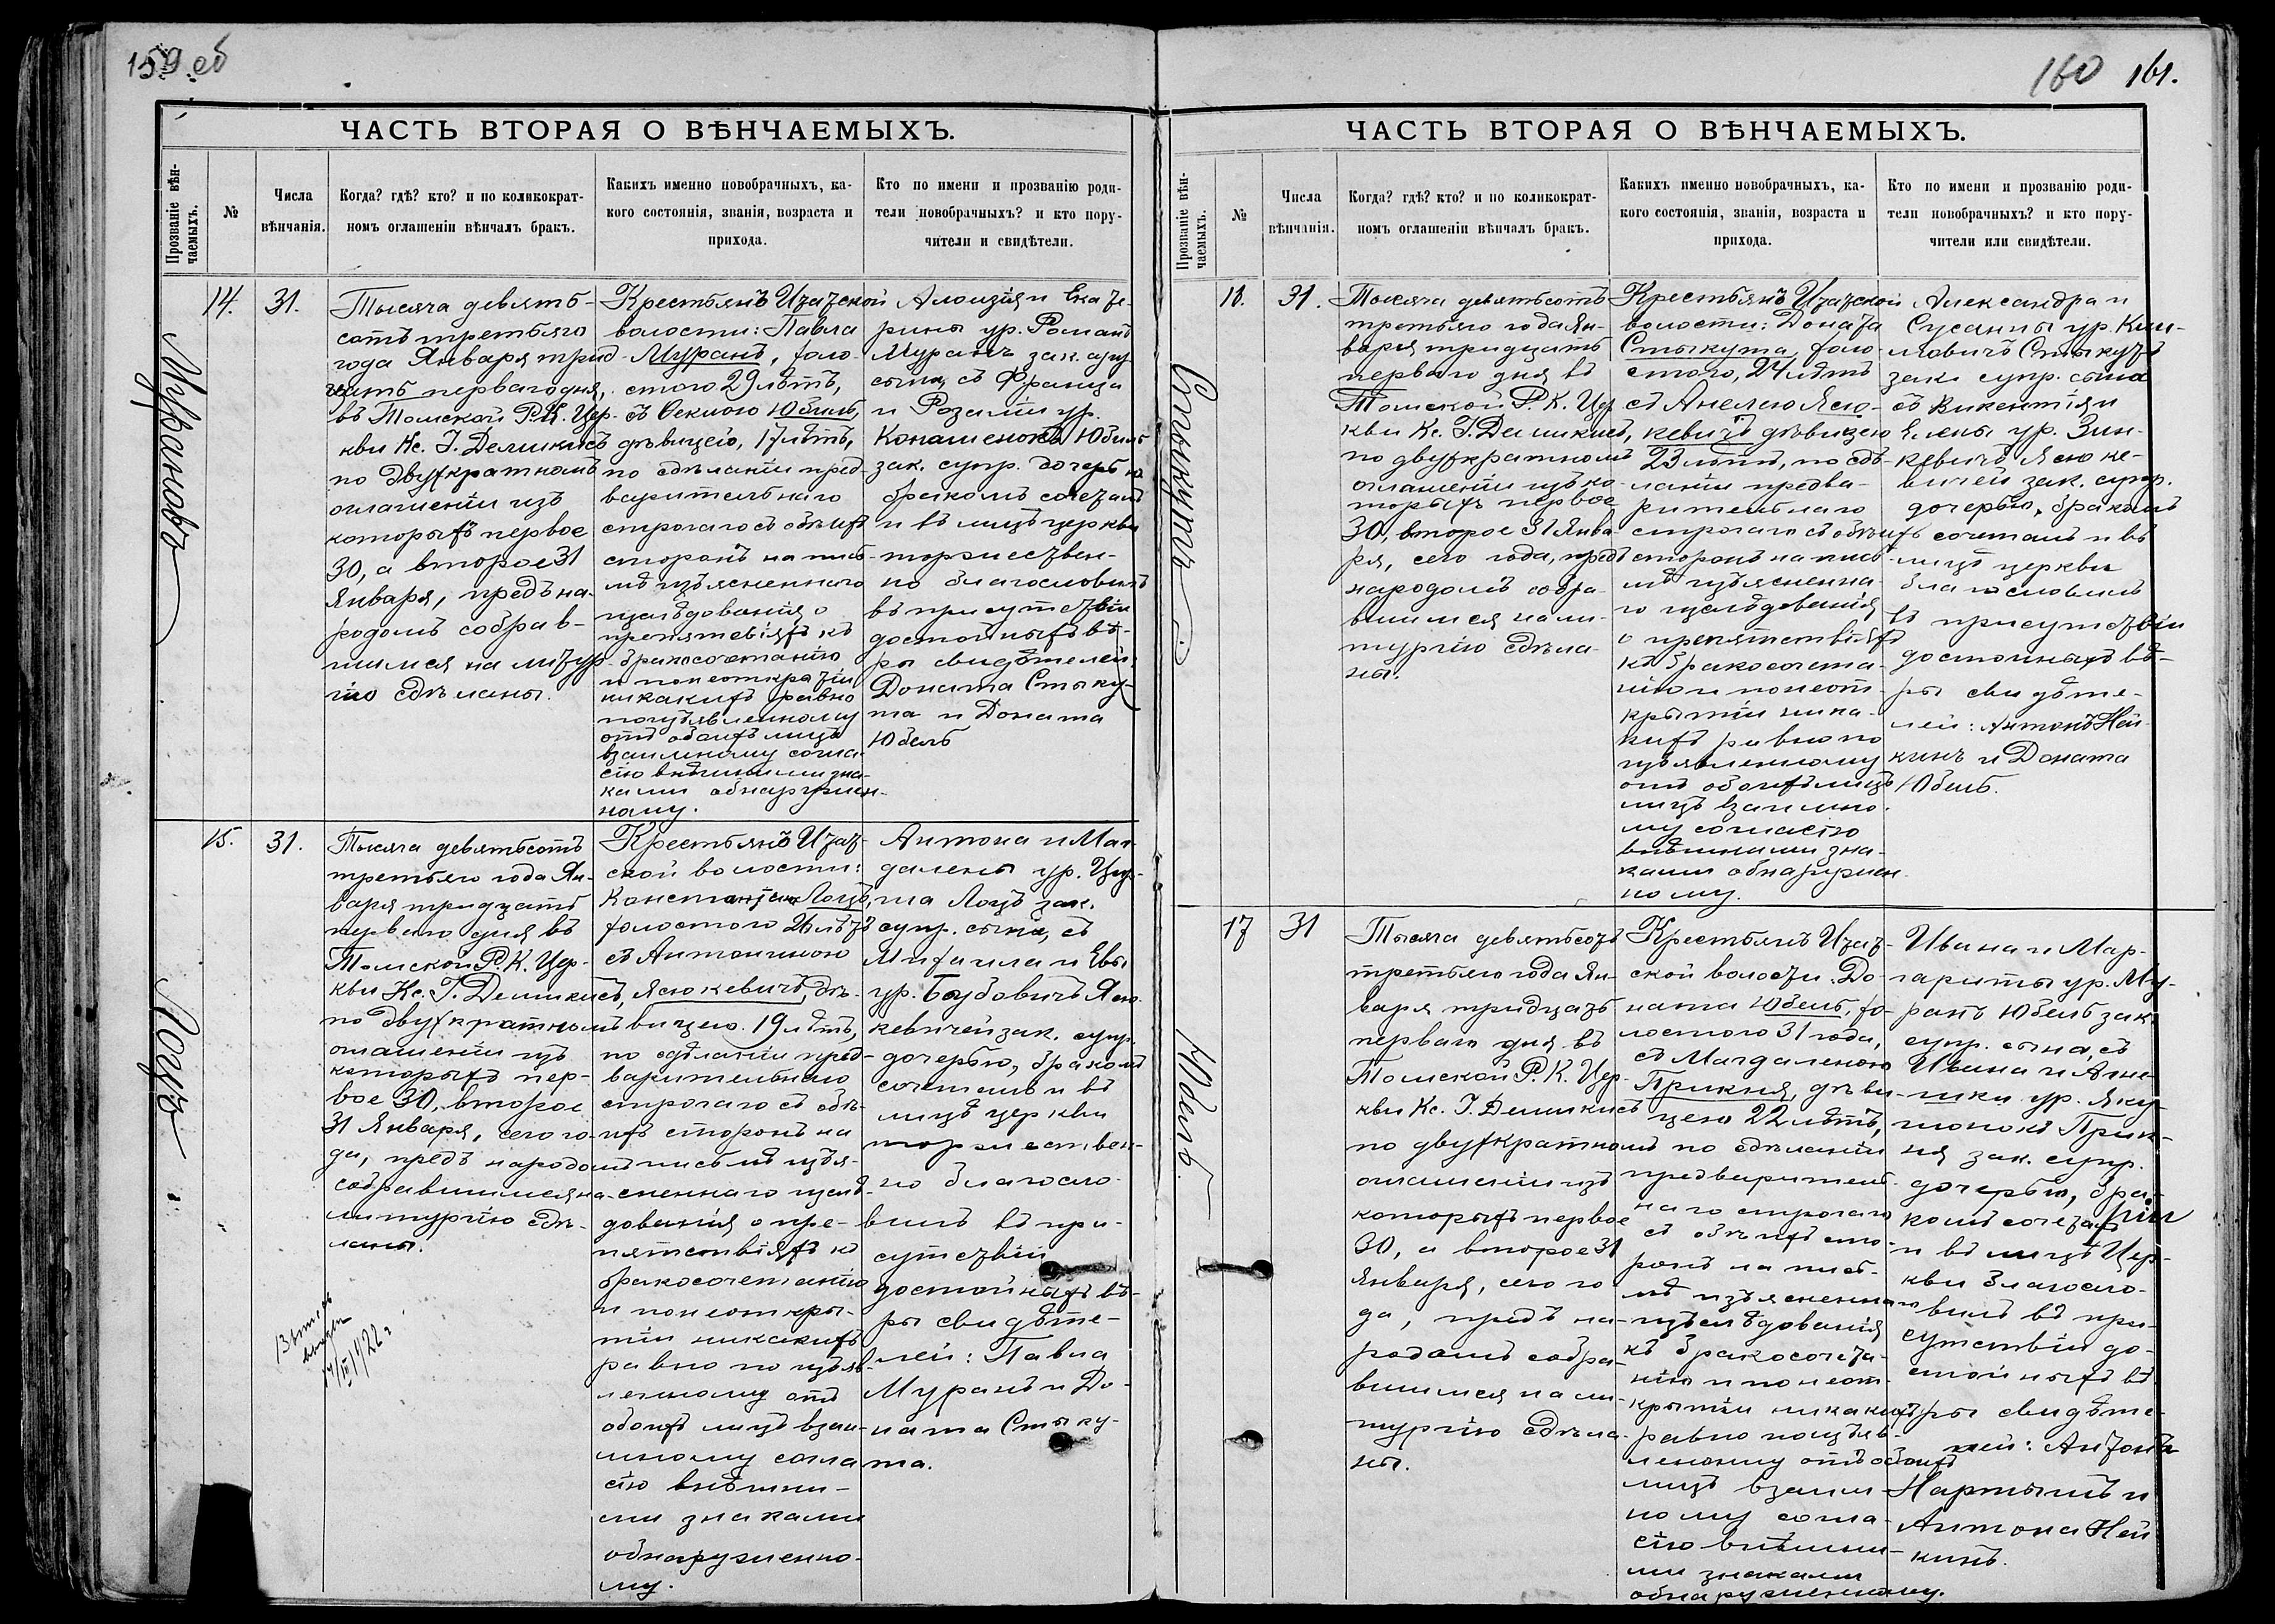 159 об
ЧАСТЬ ВТОРАЯ О ВѢНЧАЕМЫХЪ.
Прозваніе вѣн-
чаемыхъ.
№
Числа
вѣнчанія.
Когда? гдѣ? кто? и по коликократ-
номъ оглашеніи вѣнчалъ бракъ.
Какихъ именно новобрачныхъ, ка-
кого состоянія, званія, возраста и
прихода.
Кто по имени и прозванію роди-
тели новобрачныхъ? и кто пору-
чители и свидѣтели.
Мурановъ
14.
31.
Тысяча девять-
сотъ третьяго
года Января трид-
цать перваго дня,
въ Томской Р. К. Цер-
кви Кс. І. Демикисъ
по двухкратномъ
оглашеніи изъ
которыхъ первое
30, а второе 31
Января, предъ на-
родомъ собрав-
шимся на литур-
гію сдѣланы.
Крестьянъ Изазской
волости: Павла
Муранъ, холо-
стого 29 лѣтъ,
съ Феклою Юбель,
дѣвицею, 17 лѣтъ,
по сдѣланіи пред-
варительнаго
строгаго съ обѣихъ
сторонъ на пись-
мѣ изъясненнаго
изслѣдованія о
препятствіяхъ къ
бракосочетанію
и по неоткрытіи
никакихъ равно
по изъявленному
отъ обоихъ лицъ
взаимному согла-
сію внѣшними зна-
ками обнаружен-
ному.
Алоизія и Екате-
рины ур. Романъ
Муранъ зак. супр
сына, съ Франца
и Розаліи ур.
Конашенокъ Юбель
зак. супр. дочерью
бракомъ сочеталъ
и въ лицѣ церкви
торжествен-
но благословилъ
въ присутствіи
достойныхъ вѣ-
ры свидѣтелей:
Доната Стыку-
та и Доната
Юбель
Лоцъ
15.
31.
Тысяча девятьсотъ
третьяго года Ян-
варя тридцать
перваго дня въ
Томской Р. К. Цер-
кви Кс. І. Демикисъ,
по двухкратномъ
оглашеніи изъ
которыхъ пер-
вое 30, второе
31 Января, сего го-
да, предъ народомъ
собравшимся на
литургію сдѣ-
ланы.
Крестьянъ Изаз-
ской волости:
Константина Лоцъ,
холостого 26 лѣтъ
съ Антониною
Ясюкевичъ, дѣ-
вицею 19 лѣтъ,
по сдѣланіи пред-
варительнаго
строгаго съ обѣ-
ихъ сторонъ на
письмѣ изъя-
сненнаго изслѣ-
дованія о пре-
пятствіяхъ къ
бракосочетанію
и по неоткры-
тіи никакихъ
равно по изъяв-
ленному отъ
обоихъ лицъ взаи-
мному согла-
сію внѣшни-
ми знаками
обнаруженно-
му.
Антона и Маг-
далены ур.
Лоцъ зак.
супр. сына, съ
Михаила и Евы
ур. Бабовичъ Ясю-
кевичей зак. супр.
дочерью, бракомъ
сочеталъ и въ
лицѣ церкви
торжествен-
но благосло-
вилъ въ при-
сутствіи
достойныхъ вѣ-
ры свидѣте-
лей: Павла
Муранъ и До-
ната Стыку-
та.
160
161.
ЧАСТЬ ВТОРАЯ О ВѢНЧАЕМЫХЪ.
Прозваніе вѣн-
чаемыхъ.
№
Числа
вѣнчанія.
Когда? гдѣ? кто? и по коликократ-
номъ оглашеніи вѣнчалъ бракъ.
Какихъ именно новобрачныхъ, ка-
кого состоянія, званія, возраста и
прихода.
Кто по имени и прозванію роди-
тели новобрачныхъ? и кто пору-
чители или свидѣтели.
Стыкутъ
31.
Тысяча девятьсотъ
третьяго года Ян-
варя тридцать
перваго дня въ
Томской Р. К. Цер
кви Кс. І. Демикисъ,
по двухкратномъ
оглашеніи изъ ко-
торыхъ первое
30, второе 31 Янва
ря, сего года, предъ
народомъ собра-
вшимся на ли-
тургію сдѣла-
ны.
Крестьянъ Изазской
волости: Доната
Стыкута, холо-
стого, 24 лѣтъ
съ Анелею Ясю-
кевичъ дѣвицею
23 лѣтъ, по сдѣ-
ланіи предва-
рительнаго
строгаго съ обѣихъ
сторонъ на пись-
мѣ изъясненна-
го изслѣдованія
о препятствіяхъ
къ бракосочета-
нію и по неот-
крытіи ника-
кихъ равно по
изъявленному
отъ обоихъ лицъ
лицъ взаимно-
му согласію
внѣшними зна-
ками обнаружен
ному.
Александра и
Сусанны ур. Кли-
мовичъ Стыкутъ
зак. супр. сына
съ Викентія и
Елены ур. Зин-
кевичъ Ясюке-
вичей зак. супр.
дочерью, бракомъ
сочеталъ и въ
лицѣ церкви
благословилъ
въ присутствіи
достойныхъ вѣ-
ры свидѣте-
лей: Антонъ Ней-
кинъ и Доната
Юбель.
Юбель
17
31
Тысяча девятьсотъ
третьяго года Ян-
варя тридцать
перваго дня въ
Томской Р. К. Цер-
кви Кс. І. Демикисъ
по двухкратномъ
оглашеніи изъ
которыхъ первое
30, а второе 31
Января, сего го-
да, предъ на-
родомъ собра-
вшимся на ли-
тургію сдѣла-
ны.
Крестьянъ Изаз-
ской волости: До-
ната Юбель, хо-
лостого 31 года,
съ Магдаленою
Прикня, дѣви-
цею 22 лѣтъ,
по сдѣланіи
предваритель-
наго строгаго
съ обѣихъ сто-
ронъ на пись-
мѣ изъясненнаго
изслѣдованія
къ бракосочета-
нію и по неот-
крытіи никакихъ
равно по изъяв-
ленному отъ обоихъ
лицъ взаим-
ному согла-
сію внѣшни-
ми знаками
обнаруженному.
Ивана и Мар-
гариты ур. Му-
ранъ Юбель зак.
супр. сына, съ
Ивана и Агне-
шки ур. Яку-
шонокъ Прик-
ня зак. супр.
дочерью, бра-
комъ сочеталъ
и въ лицѣ Цер-
кви благосло-
вилъ въ при-
сутствіи до-
стойныхъ вѣ
ры свидѣте-
лей: Антонъ
Нартышъ и
Антона Ней
кинъ.